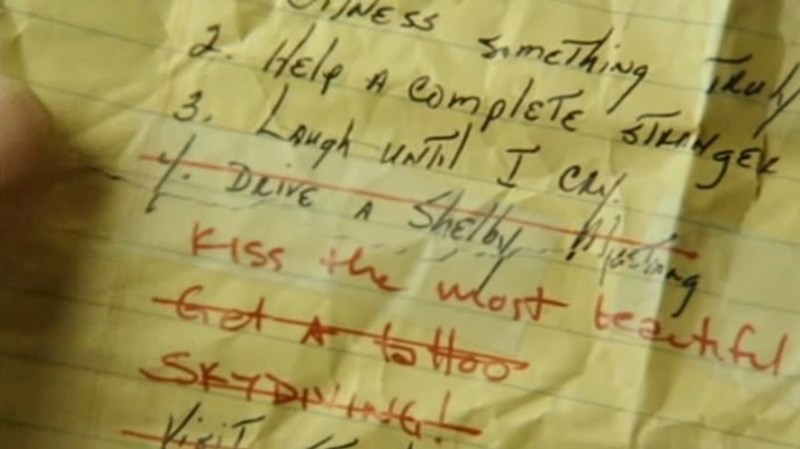 something truly
2. Help a complete stranger
3. Laugh until I cry.
4. Drive a Shelby Mustang
Kiss the most beautiful
Get a tattoo
SKYDIVING!
Visit